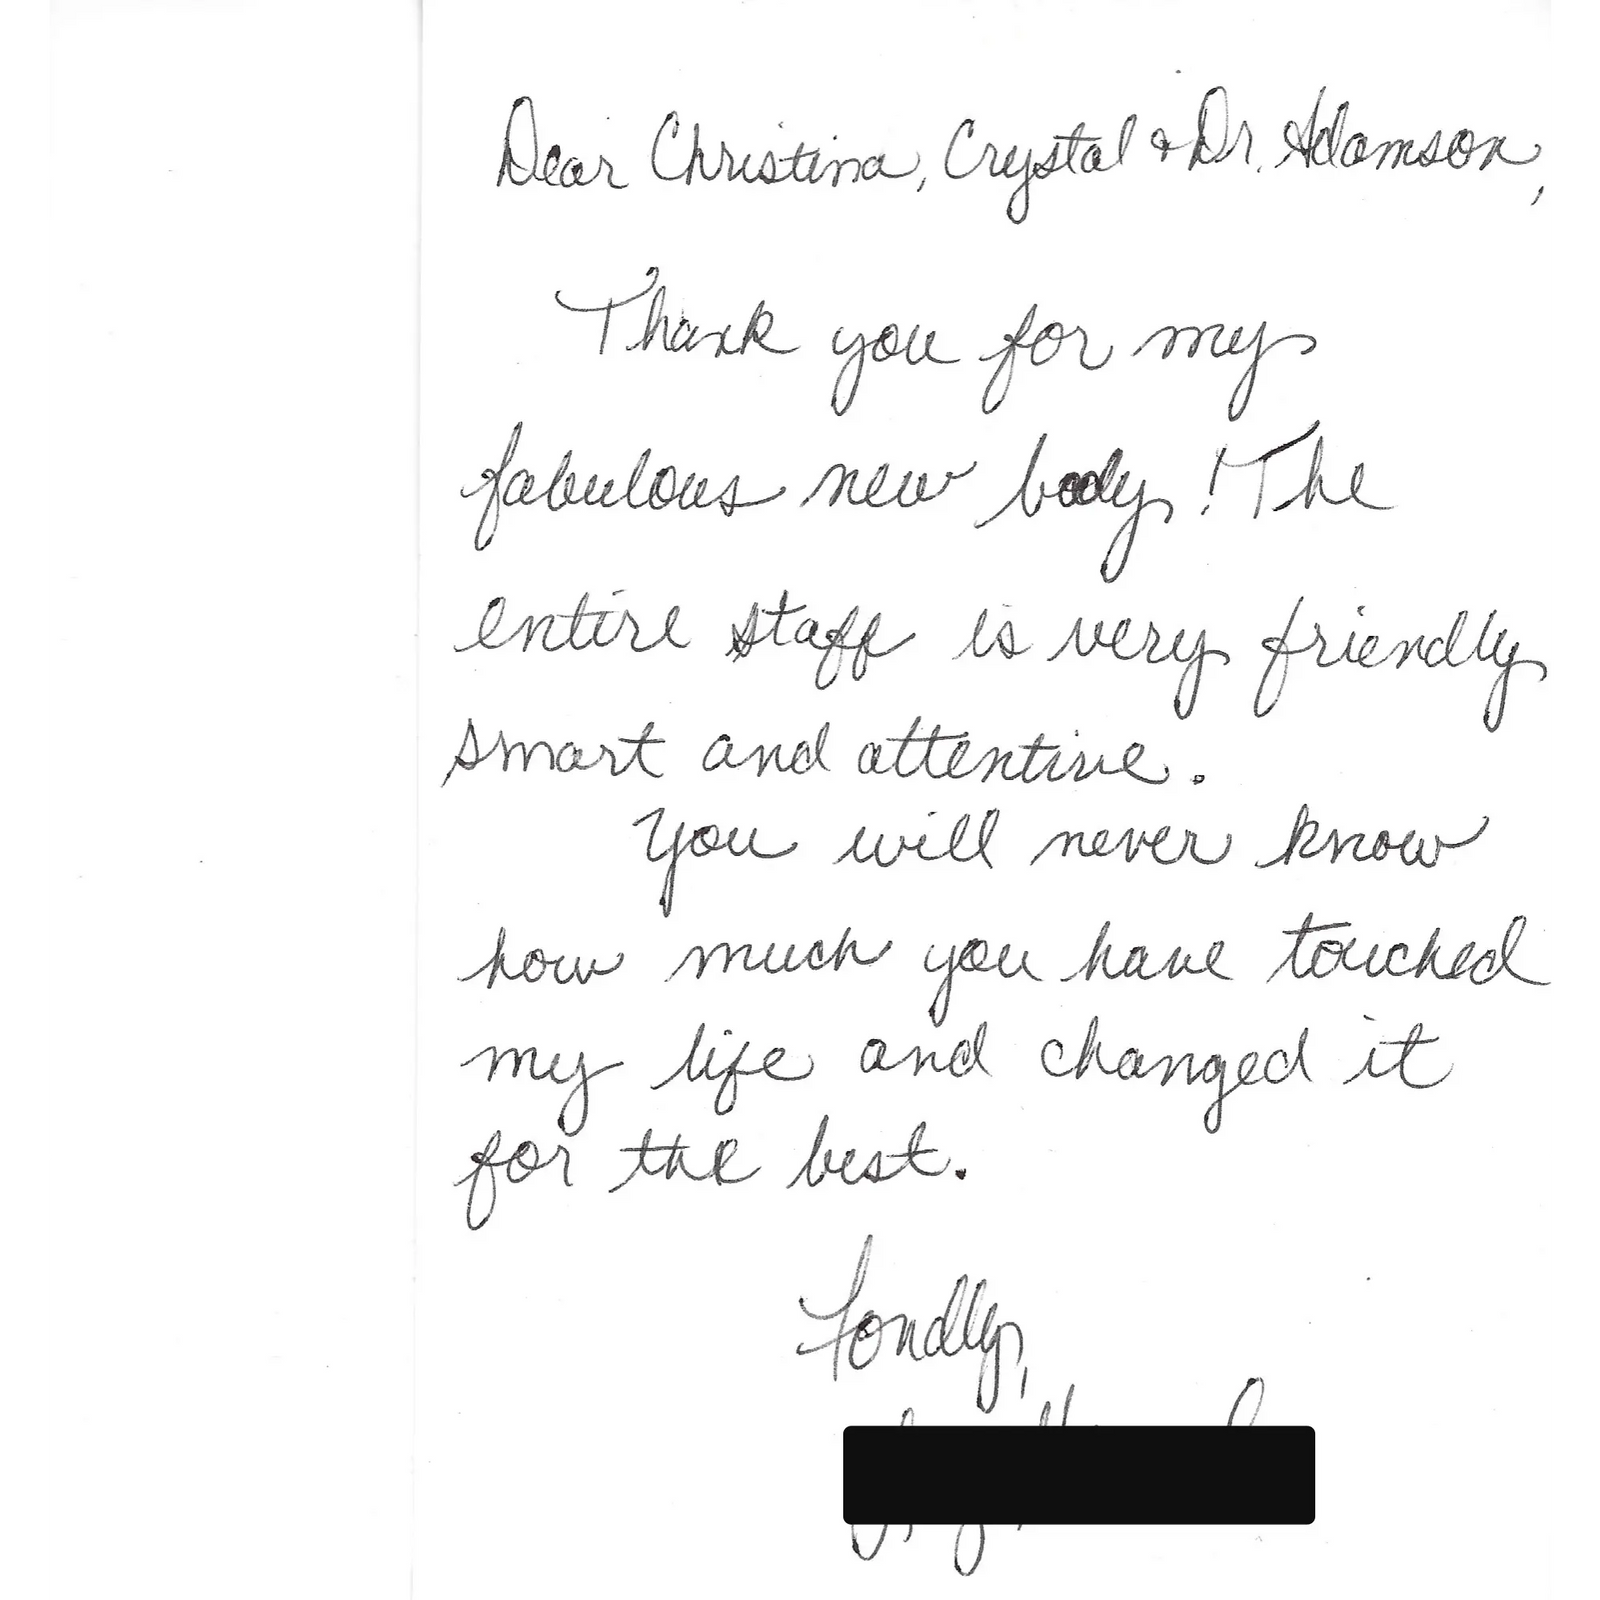 Dear Christina, Crystal & Dr. Adamson,
Thank you for my
fabulous new body! The
entire staff is very friendly
smart and attentive.
You will never know
how much you have touched
my life and changed it
for the best.
Fondly,